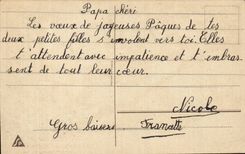 Papa chéri
Les vœux de joyeuses Pâques de tes
deux petites filles s'envolent vers toi. Elles
t'attendent avec impatience et t'embras-
sent de tout leur cœur.
Nicole
Gros baisers